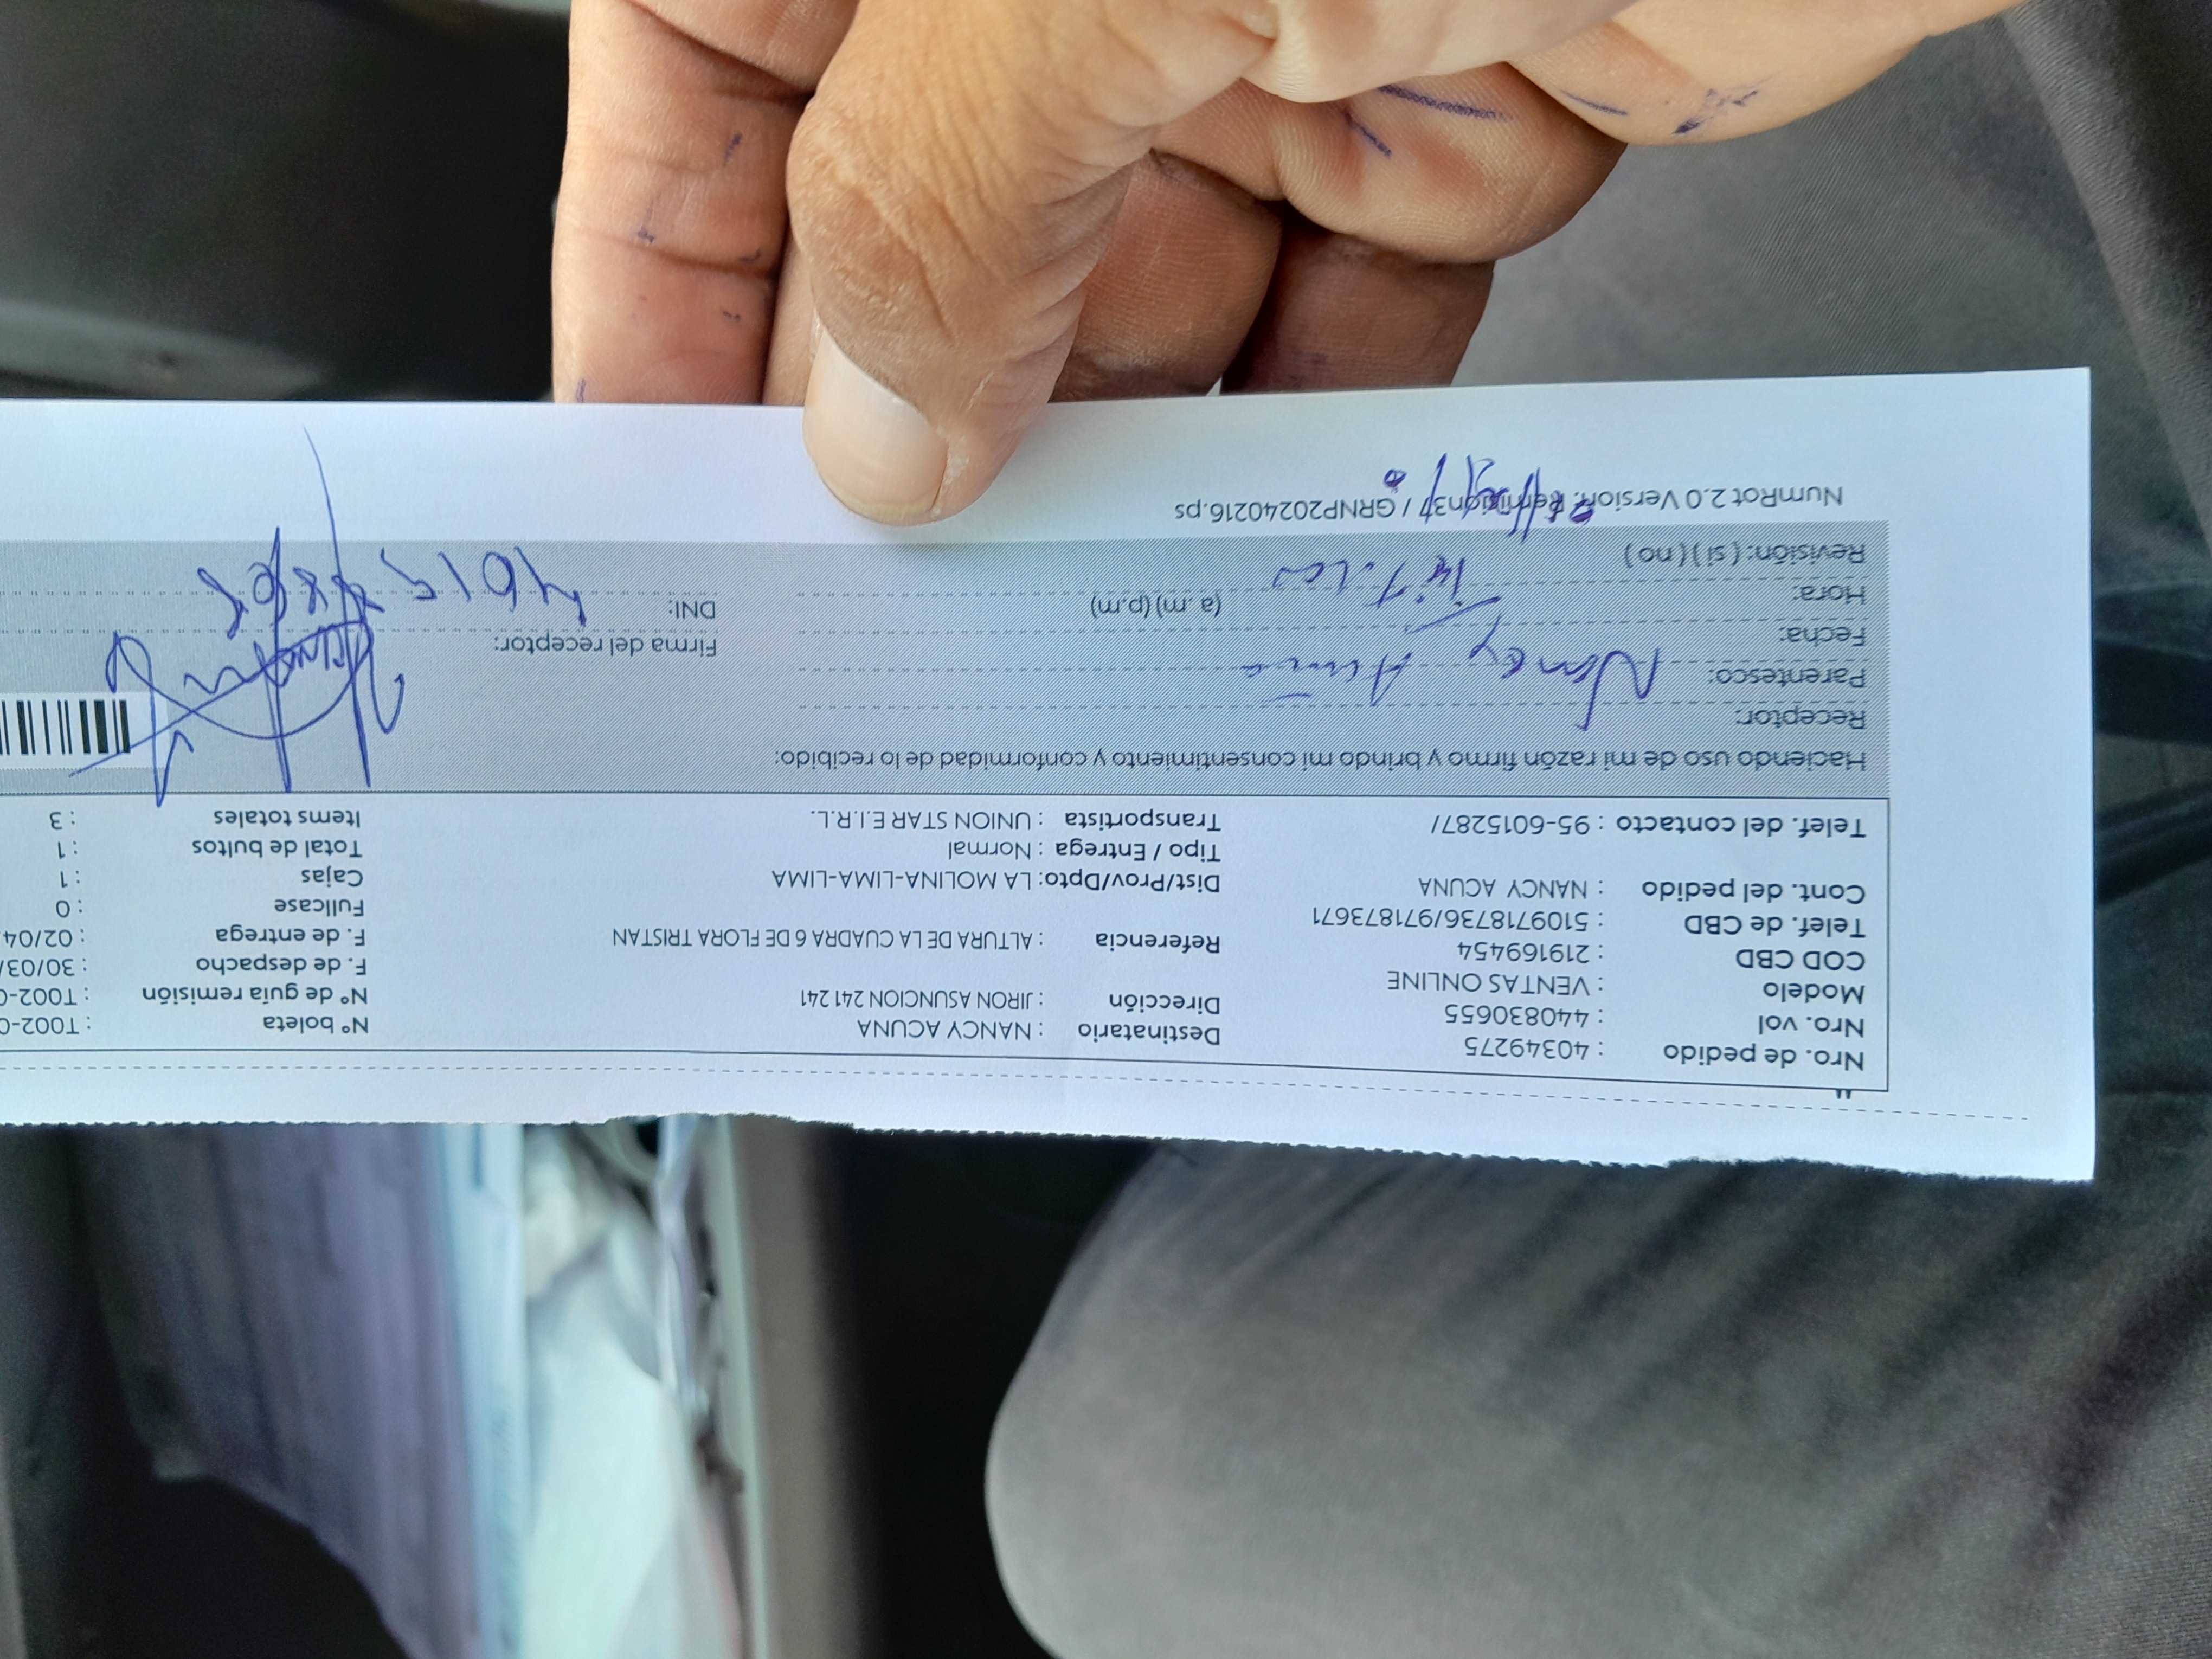 Nro. de pedido : 40349275 Destinatario : NANCY ACUNA Nº boleta : T002-0
Nro. vol : 440830655 Dirección : JIRON ASUNCION 241 241 Nº de guía remisión : T002-0
Modelo : VENTAS ONLINE F. de despacho : 30/03/
COD CBD : 219169454 Referencia : ALTURA DE LA CUADRA 6 DE FLORA TRISTAN F. de entrega : 02/04
Telef. de CBD : 5109718736/971873671 Fullcase : 0
Cont. del pedido : NANCY ACUNA Dist/Prov/Dpto: LA MOLINA-LIMA-LIMA Cajas : 1
Tipo / Entrega : Normal Total de bultos : 1
Telef. del contacto : 95-6015287/ Transportista : UNION STAR E.I.R.L. Items totales : 3
Haciendo uso de mi razón firmo y brindo mi consentimiento y conformidad de lo recibido:
Receptor:
Parentesco: Nancy Acuña
Fecha: Firma del receptor:
Hora: Titular (a. m) (p.m) DNI:
Revisión: ( si ) ( no )
NumRot 2.0 Version: Remision37 / GRNP20240216.ps